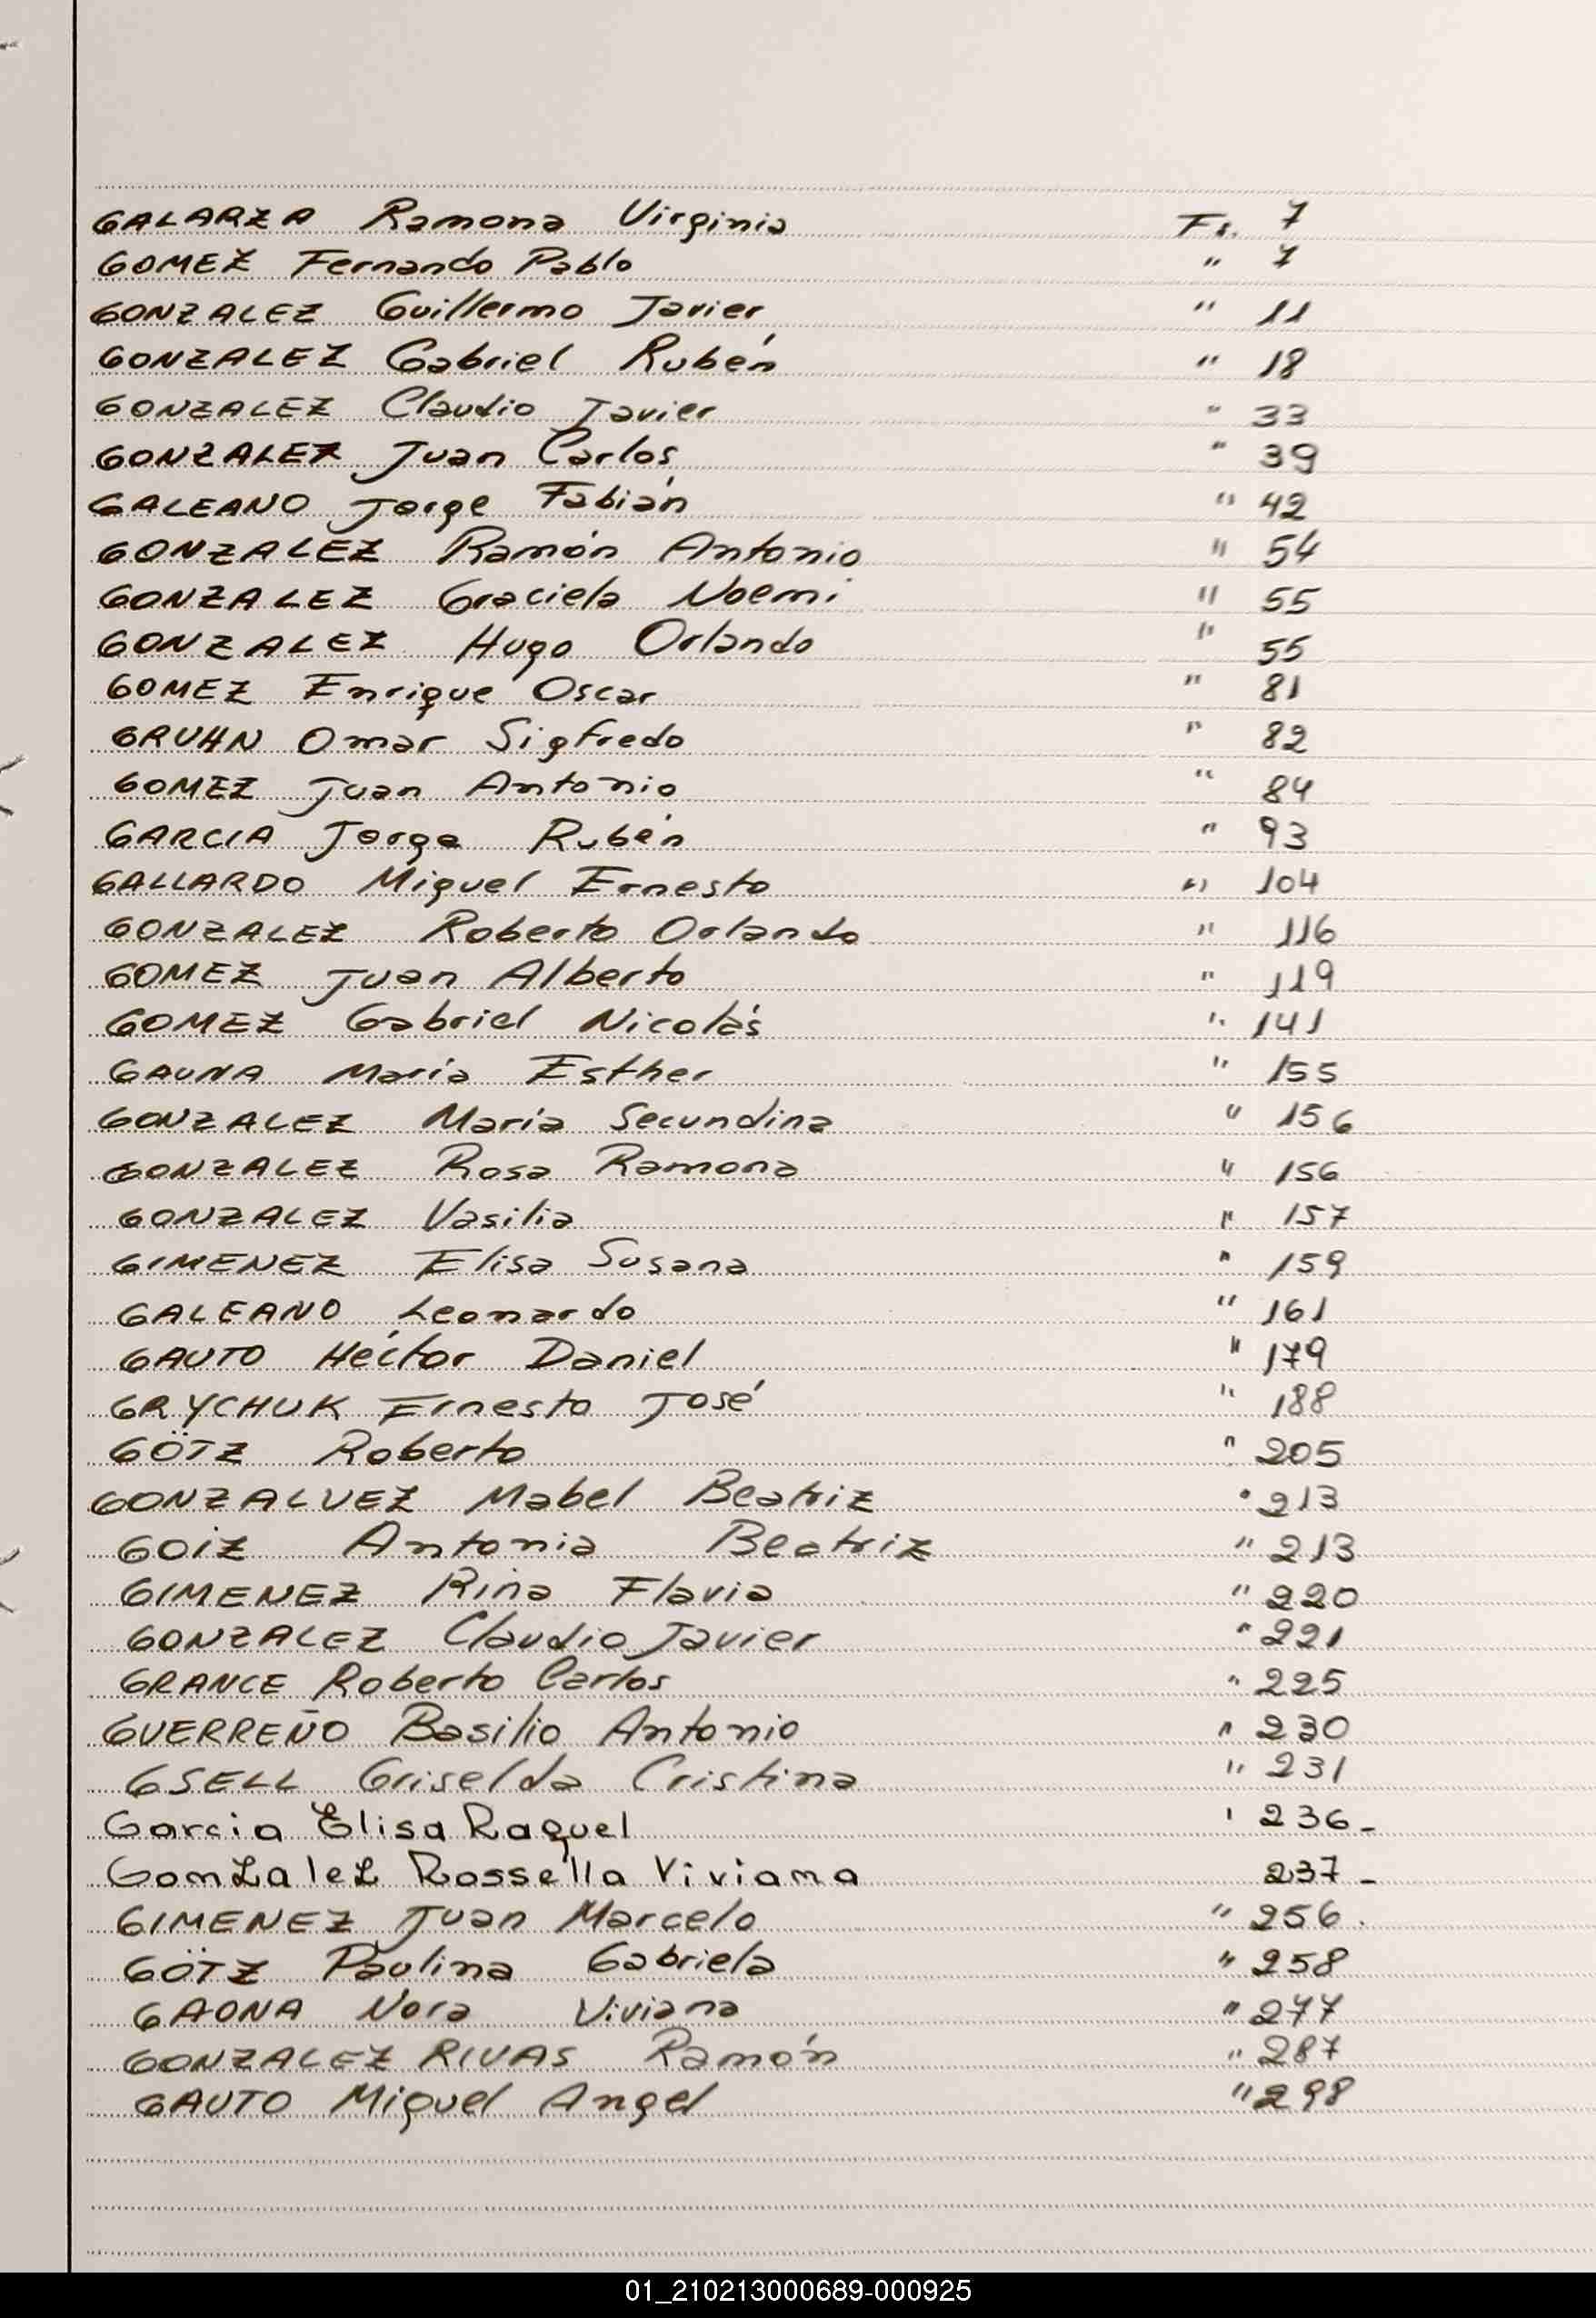 GALARZA Ramona Virginia Fs. 7
GOMEZ Fernando Pablo " 7
GONZALEZ Guillermo Javier " 11
GONZALEZ Gabriel Rubén " 18
GONZALEZ Claudio Javier " 33
GONZALEZ Juan Carlos " 39
GALEANO Jorge Fabián " 42
GONZALEZ Ramón Antonio " 54
GONZALEZ Graciela Noemi " 55
GONZALEZ Hugo Orlando " 55
GOMEZ Enrique Oscar " 81
GRUHN Omar Sigfredo " 82
GOMEZ Juan Antonio " 84
GARCIA Jorge Rubén " 93
GALLARDO Miguel Ernesto " 104
GONZALEZ Roberto Orlando " 116
GOMEZ Juan Alberto " 119
GOMEZ Gabriel Nicolás " 141
GAUNA María Esther " 155
GONZALEZ María Secundina " 156
GONZALEZ Rosa Ramona " 156
GONZALEZ Vasilia " 157
GIMENEZ Elisa Susana " 159
GALEANO Leonardo " 161
GAUTO Héctor Daniel " 179
GRYCHUK Ernesto José " 188
GÖTZ Roberto " 205
GONZALVEZ Mabel Beatriz " 213
GOIZ Antonia Beatriz " 213
GIMENEZ Rina Flavia " 220
GONZALEZ Claudio Javier " 221
GRANCE Roberto Carlos " 225
GUERREÑO Basilio Antonio " 230
GSELL Griselda Cristina " 231
Garcia Elisa Raquel ' 236-
Gonzalez Rossella Viviana 237-
GIMENEZ Juan Marcelo " 256.
GÖTZ Paulina Gabriela " 258
GAONA Nora Viviana " 277
GONZALEZ RIVAS Ramón " 287
GAUTO Miguel Angel " 298
01_210213000689-000925